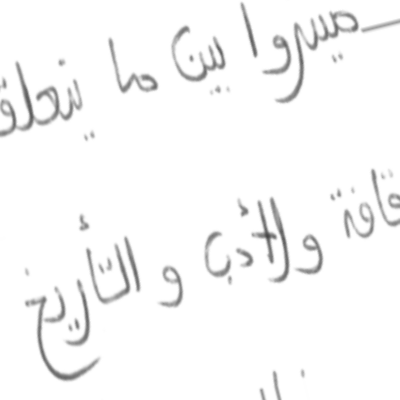 ميسروا بين ما يتعلق
قافة والأدب و التأريخ